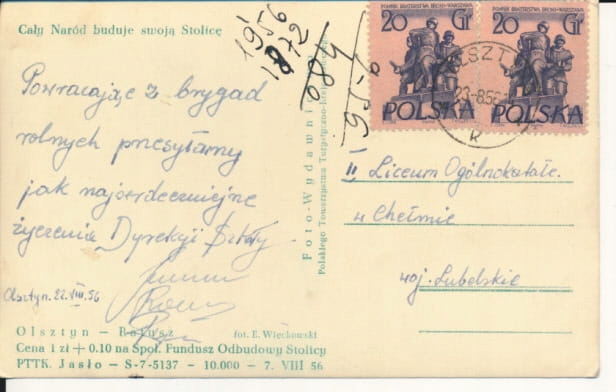 Cały Naród buduje swoją Stolicę
Powracając z brygad
rolnych przesyłamy
jak najserdeczniejsze
życzenia Dyrekcji Szkoły
Olsztyn. 22.VIII.56
Olsztyn – Ratusz fot. E. Więckowski
Cena 1 zł + 0.10 na Społ. Fundusz Odbudowy Stolicy
PTTK. Jasło – S-7-5137 – 10.000 – 7. VIII 56
1956
Foto-Wydawnic
Polskiego Towarzystwa Turystyczno-Krajoznawczego
POMNIK BRATERSTWA BRONI-WARSZAWA
20 Gr
POLSKA
POMNIK BRATERSTWA BRONI-WARSZAWA
20 Gr
POLSKA
OLSZTYN
23-8.56
II Liceum Ogólnokształc.
w Chełmie
woj. Lubelskie